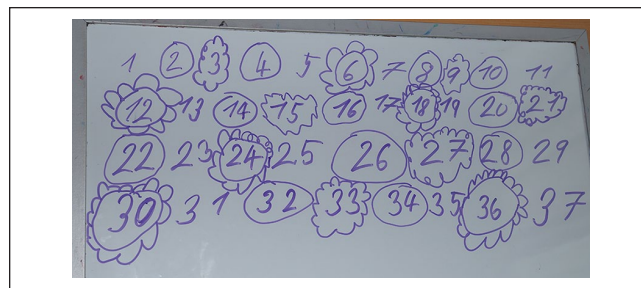 1 2 3 4 5 6 7 8 9 10 11
12 13 14 15 16 17 18 19 20 21
22 23 24 25 26 27 28 29
30 31 32 33 34 35 36 37